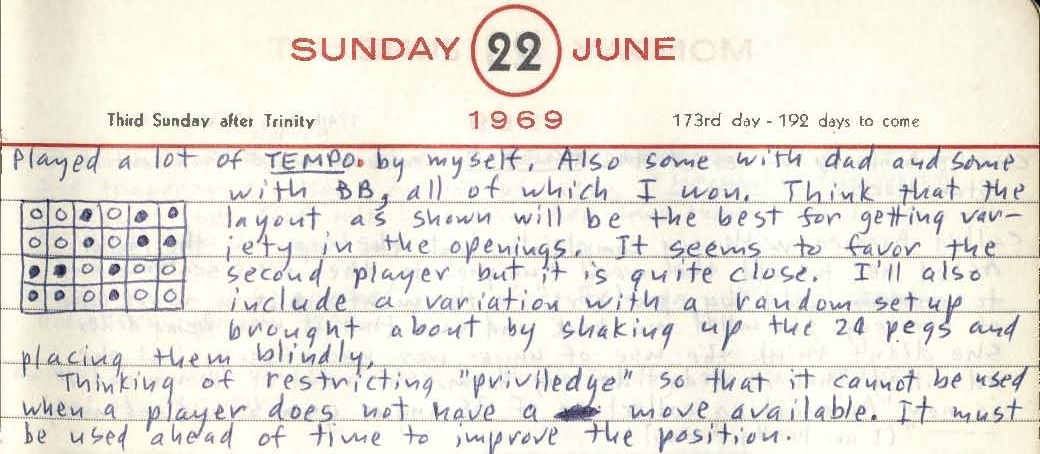 SUNDAY 22 JUNE
Third Sunday after Trinity 1969 173rd day - 192 days to come
Played a lot of TEMPO. by myself. Also some with dad and some
with BB, all of which I won. Think that the
layout as shown will be the best for getting var-
iety in the openings. It seems to favor the
second player but it is quite close. I'll also
include a variation with a random setup
brought about by shaking up the 24 pegs and
placing them blindly.
Thinking of restricting "priviledge" so that it cannot be used
when a player does not have a move available. It must
be used ahead of time to improve the position.